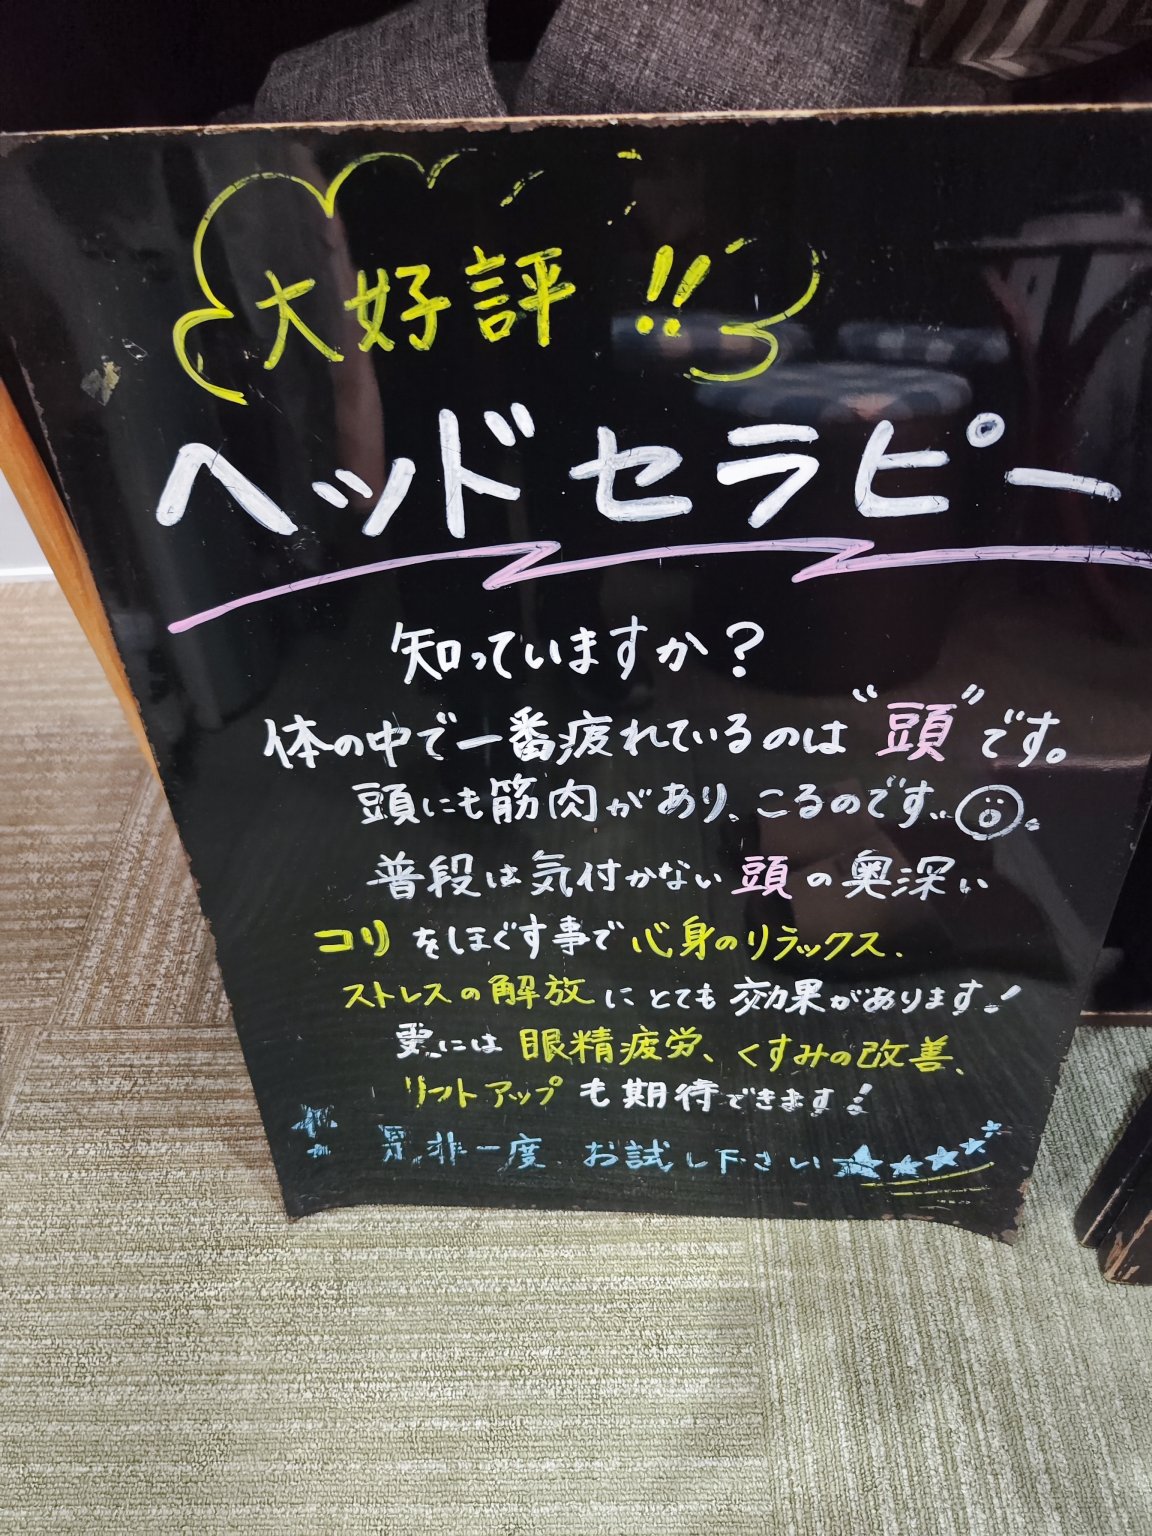 大好評!!
ヘッドセラピー
知っていますか?
体の中で一番疲れているのは"頭"です。
頭にも筋肉があり、こるのです…。
普段は気付かない頭の奥深い
コリをほぐす事で心身のリラックス、
ストレスの解放にとても効果があります!
更には眼精疲労、くすみの改善、
リフトアップも期待できます!
是非一度、お試し下さい